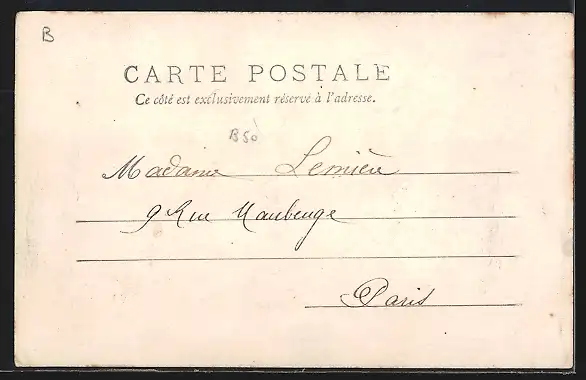 B
CARTE POSTALE
Ce côté est exclusivement réservé à l'adresse.
B50
Madame
9 Rue Maubeuge
Paris